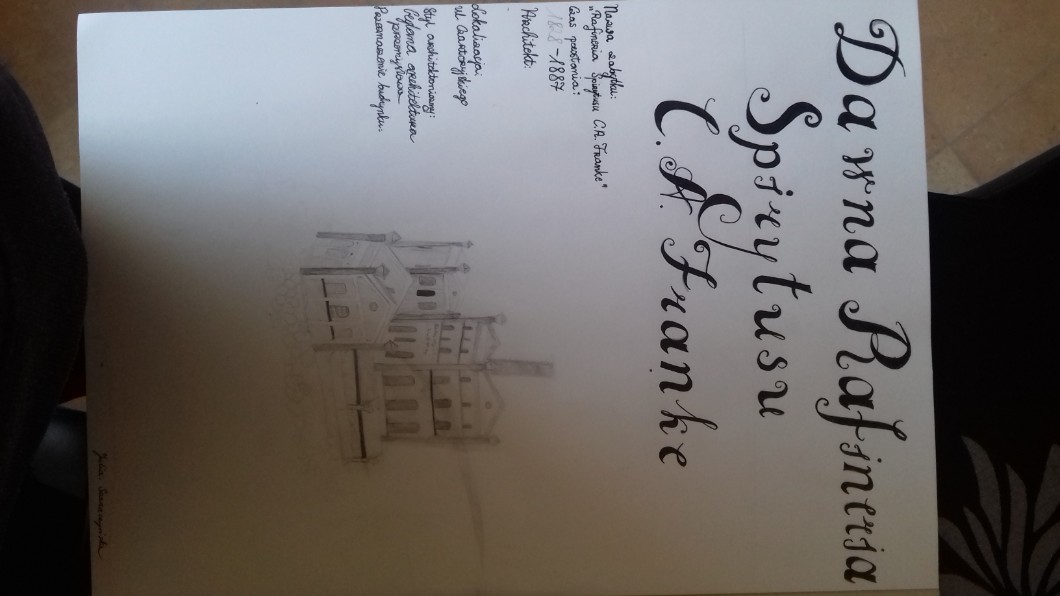 Dawna Rafineria
Spirytusu
C. A. Franke
Nazwa zabytku:
"Rafineria Spirytusu C.A. Franke"
Czas powstania:
188 - 1887
Architekt:
Lokalizacja:
Ul. Czartoryskiego
Styl architektoniczny:
Ceglana architektura
przemysłowa
Przeznaczenie budynku:
Julia